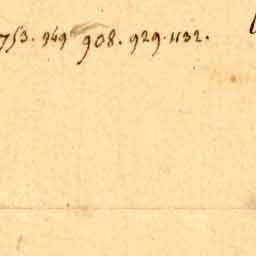 753. 949 908. 929. 1132.